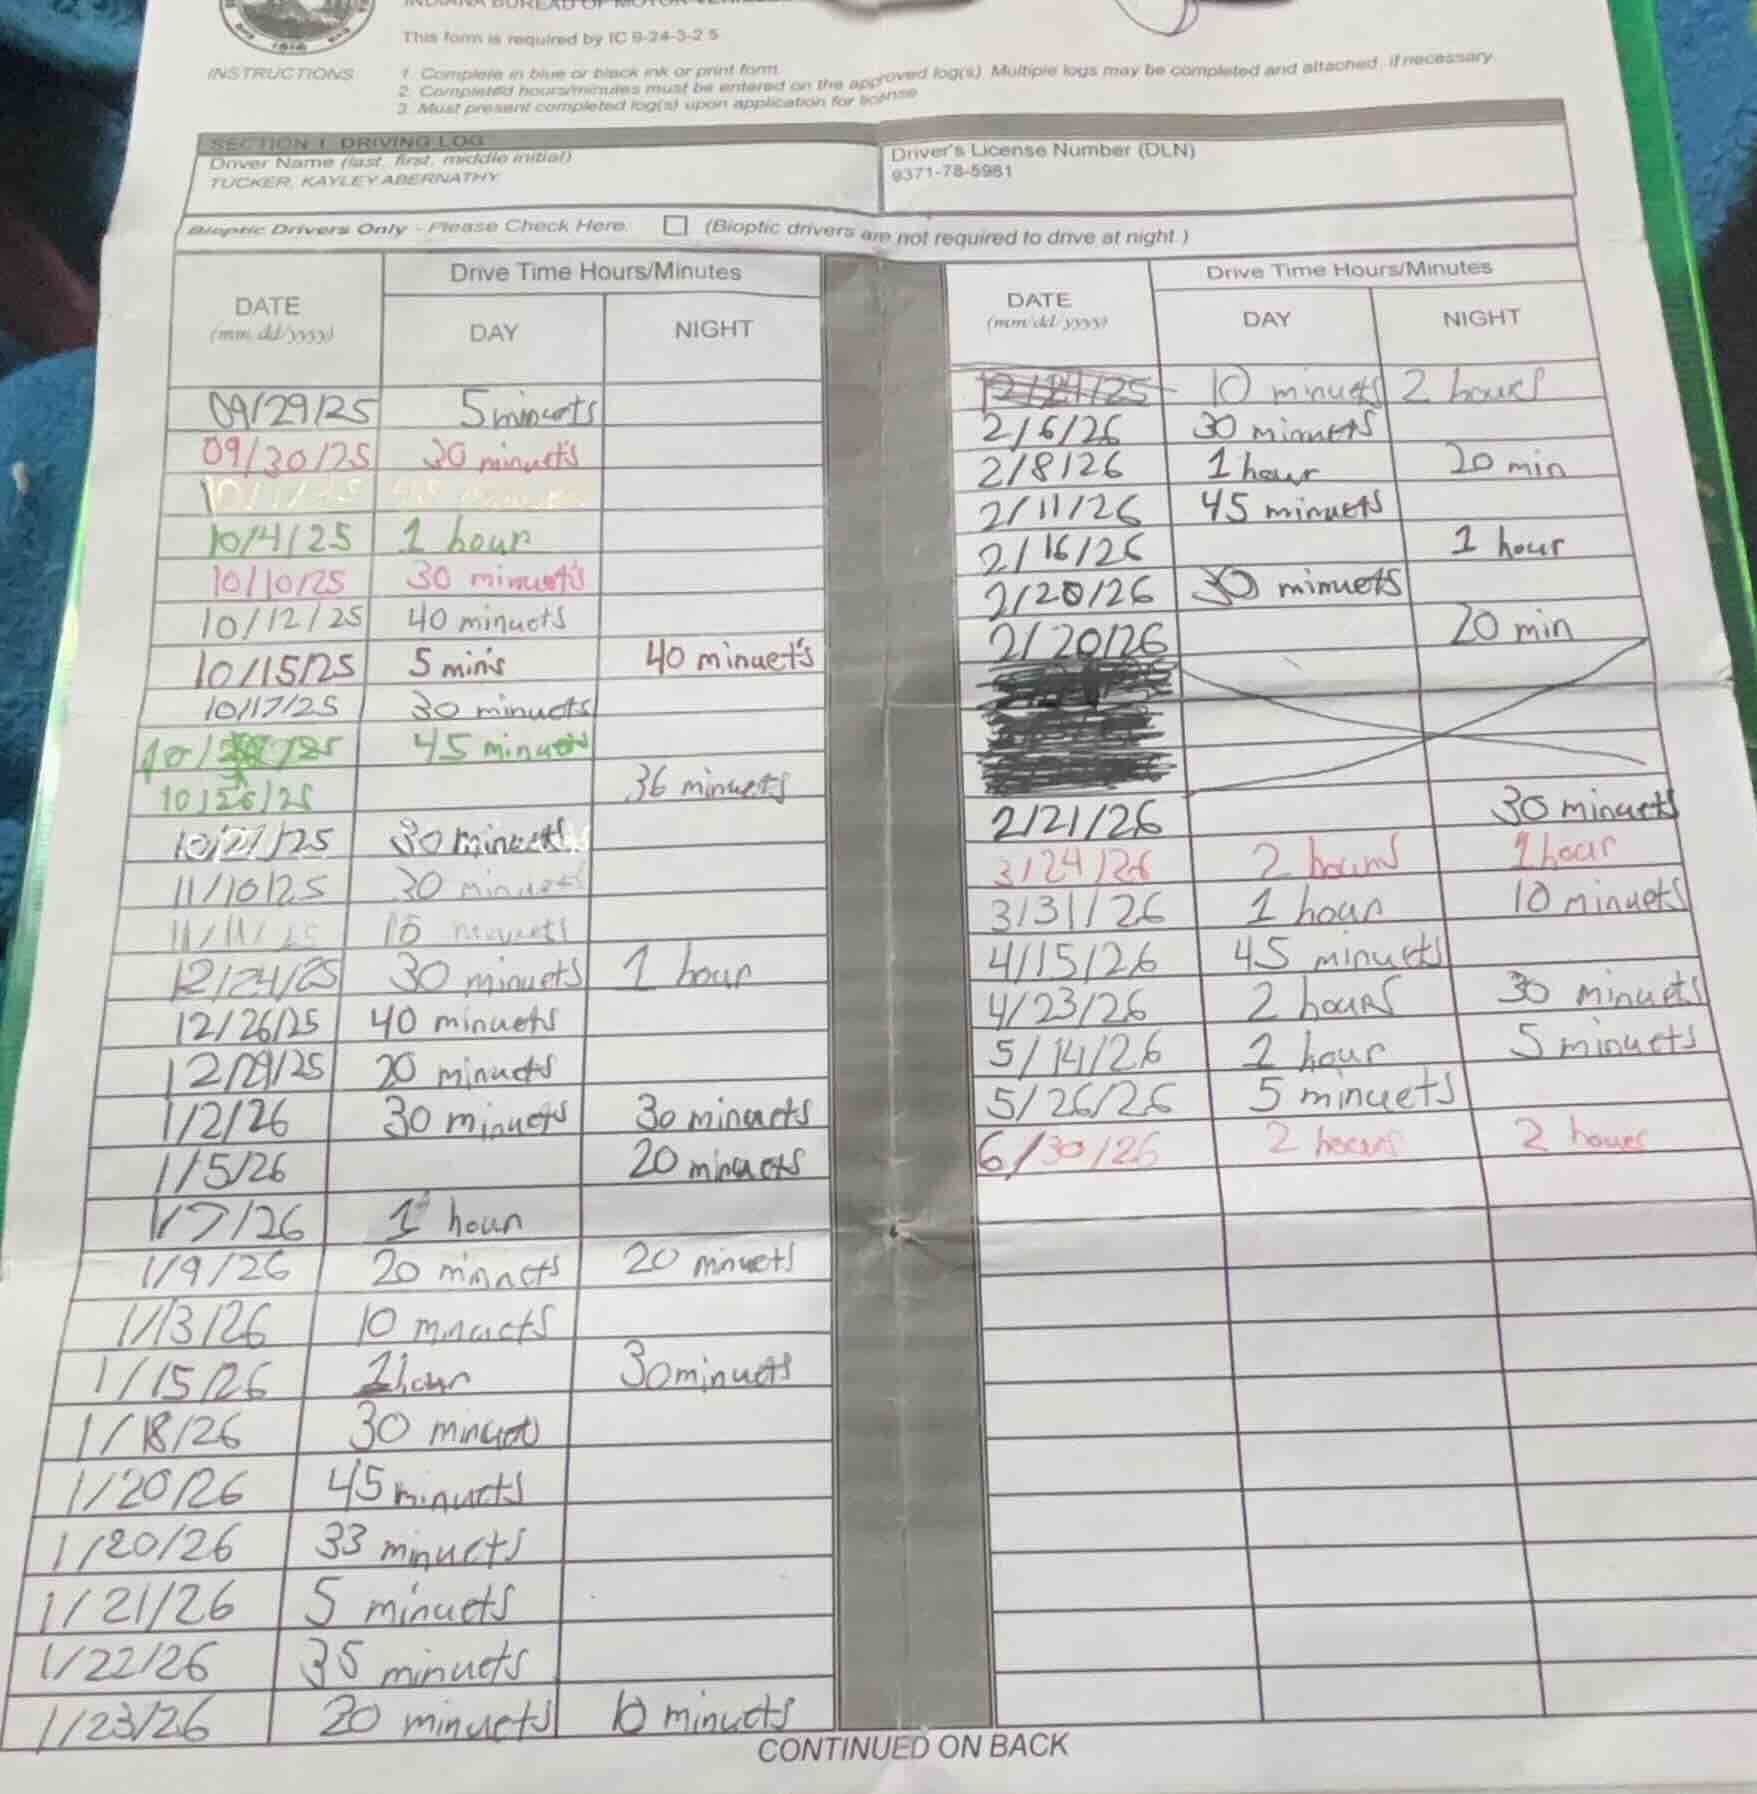 This form is required by IC 9-24-3-2.5
INSTRUCTIONS
1. Complete in blue or black ink or print form.
2. Completed hours/minutes must be entered on the approved log(s). Multiple logs may be completed and attached, if necessary.
3. Must present completed log(s) upon application for license
SECTION 1. DRIVING LOG
Driver Name (last, first, middle initial)
TUCKER, KAYLEY ABERNATHY
Driver's License Number (DLN)
9371-78-5981
Bioptic Drivers Only - Please Check Here. (Bioptic drivers are not required to drive at night.)
DATE (mm/dd/yyyy) Drive Time Hours/Minutes
DAY NIGHT
09/29/25 5 minuets
09/30/25 30 minuet's
10/4/25 1 hour
10/10/25 30 minuet's
10/12/25 40 minuets
10/15/25 5 min's 40 minuet's
10/17/25 30 minuets
45 minuets
10/26/25 36 minuets
10/27/25 30 minuets
11/10/25 30 minuets
12/24/25 30 minuets 1 hour
12/26/25 40 minuets
12/29/25 20 minuets
1/2/26 30 minuets 30 minuets
1/5/26 20 minuets
1/7/26 1 hour
1/9/26 20 minuets 20 minuets
1/13/26 10 minuets
1/15/26 1 hour 30 minuets
1/18/26 30 minuets
1/20/26 45 minuets
1/20/26 33 minuets
1/21/26 5 minuets
1/22/26 35 minuets
1/23/26 20 minuets 10 minuets
DATE (mm/dd/yyyy) Drive Time Hours/Minutes
DAY NIGHT
10 minuets 2 hours
2/6/26 30 minuets
2/8/26 1 hour 20 min
2/11/26 45 minuets
2/16/26 1 hour
2/20/26 30 minuets
2/20/26 20 min
2/21/26 30 minuets
3/24/26 2 hours 1 hour
3/31/26 1 hour 10 minuets
4/15/26 45 minuets
4/23/26 2 hours 30 minuets
5/14/26 1 hour 5 minuets
5/26/26 5 minuets
6/30/26 2 hours 2 hours
CONTINUED ON BACK